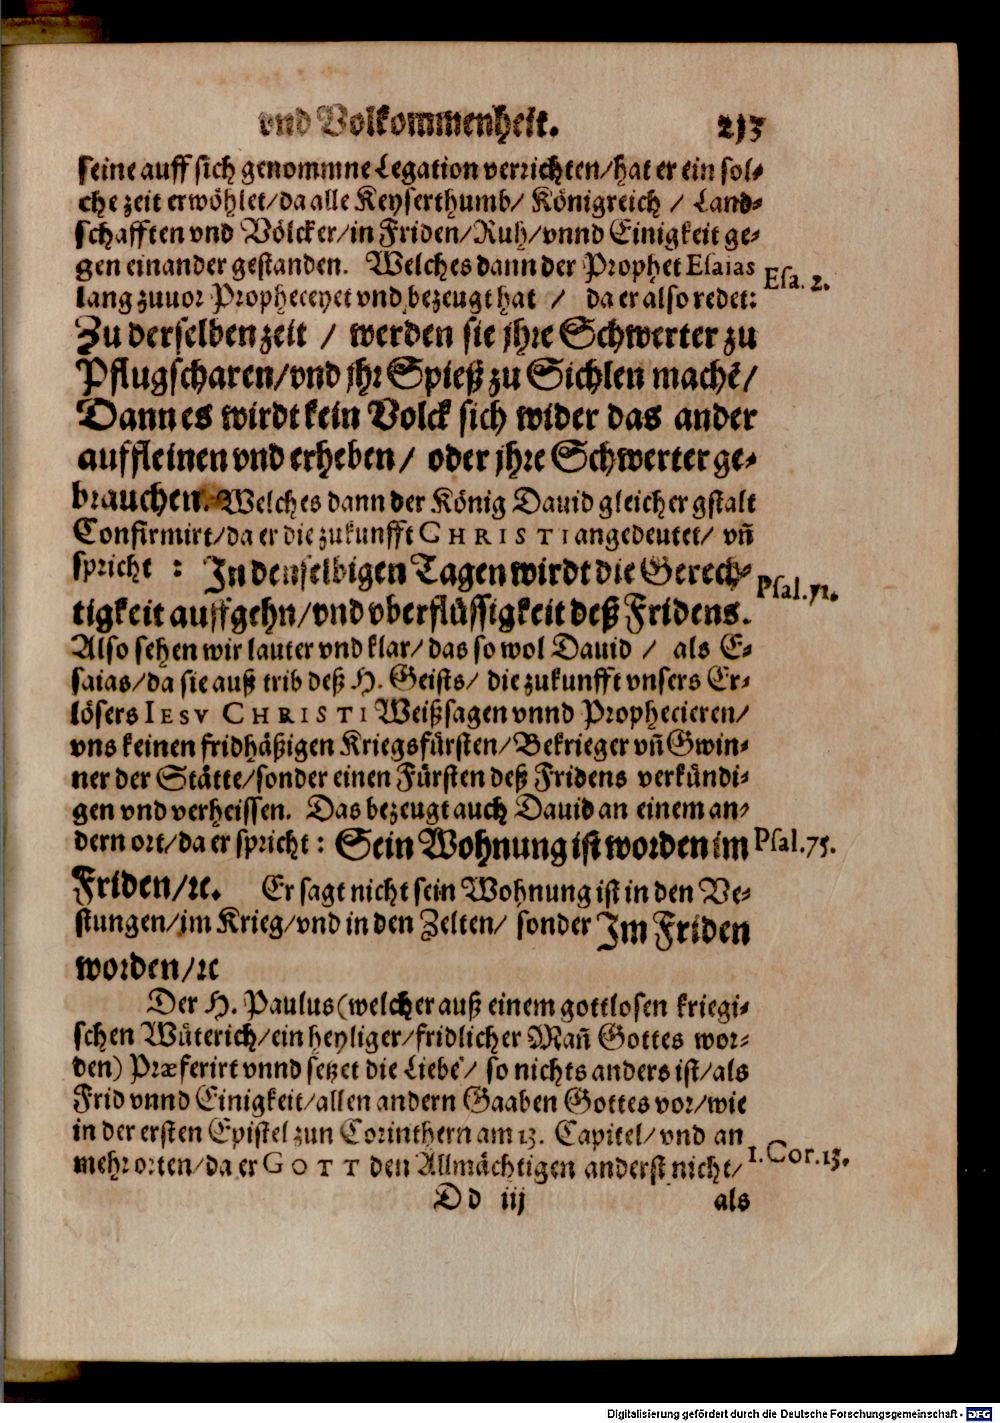 vnd Volkommenheit. 213
seine auff sich genommne Legation verrichten/hat er ein sol-
che zeit erwöhlet/da alle Keyserthumb/ Königreich / Land-
schafften vnd Völcker/in Friden/Ruh/vnnd Einigkeit ge-
gen einander gestanden. Welches dann der Prophet Esaias
Esa. 2.
lang zuuor Propheceyet vnd bezeugt hat / da er also redet:
Zu derselben zeit / werden sie jhre Schwerter zu
Pflugscharen/vnd jhr Spieß zu Sichlen machẽ/
Dann es wirdt kein Volck sich wider das ander
auffleinen vnd erheben/ oder jhre Schwerter ge-
brauchen. Welches dann der König Dauid gleicher gstalt
Confirmirt/da er die zukunfft CHRISTI angedeutet/ vñ
spricht : In denselbigen Tagen wirdt die Gerech-
Psal. 71.
tigkeit auffgehn/vnd vberflüssigkeit deß Fridens.
Also sehen wir lauter vnd klar/ das so wol Dauid / als E-
saias/da sie auß trib deß H. Geists/ die zukunfft vnsers Er-
lösers IESV CHRISTI Weißsagen vnnd Prophecieren/
vns keinen fridhäßigen Kriegsfürsten/Bekrieger vñ Gwin-
ner der Stätte/sonder einen Fürsten deß Fridens verkündi-
gen vnd verheissen. Das bezeugt auch Dauid an einem an-
dern ort/da er spricht : Sein Wohnung ist worden im
Psal. 75.
Friden/ꝛc. Er sagt nicht sein Wohnung ist in den Ve-
stungen/im Krieg/vnd in den Zelten/ sonder Im Friden
worden/ꝛc
Der H. Paulus (welcher auß einem gottlosen kriegi-
schen Wüterich/ein heyliger/fridlicher Mañ Gottes wor-
den) Præferirt vnnd setzet die Liebe/ so nichts anders ist/als
Frid vnnd Einigkeit/allen andern Gaaben Gottes vor/wie
in der ersten Epistel zun Corinthern am 13. Capitel/ vnd an
mehr orten/da er GOTT den Allmächtigen anderst nicht/
1. Cor. 13.
Dd iij als
Digitalisierung gefördert durch die Deutsche Forschungsgemeinschaft - DFG